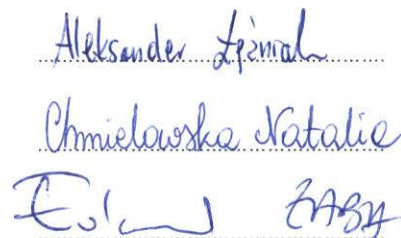 Aleksander
Chmielowska Natalia
ŻABA